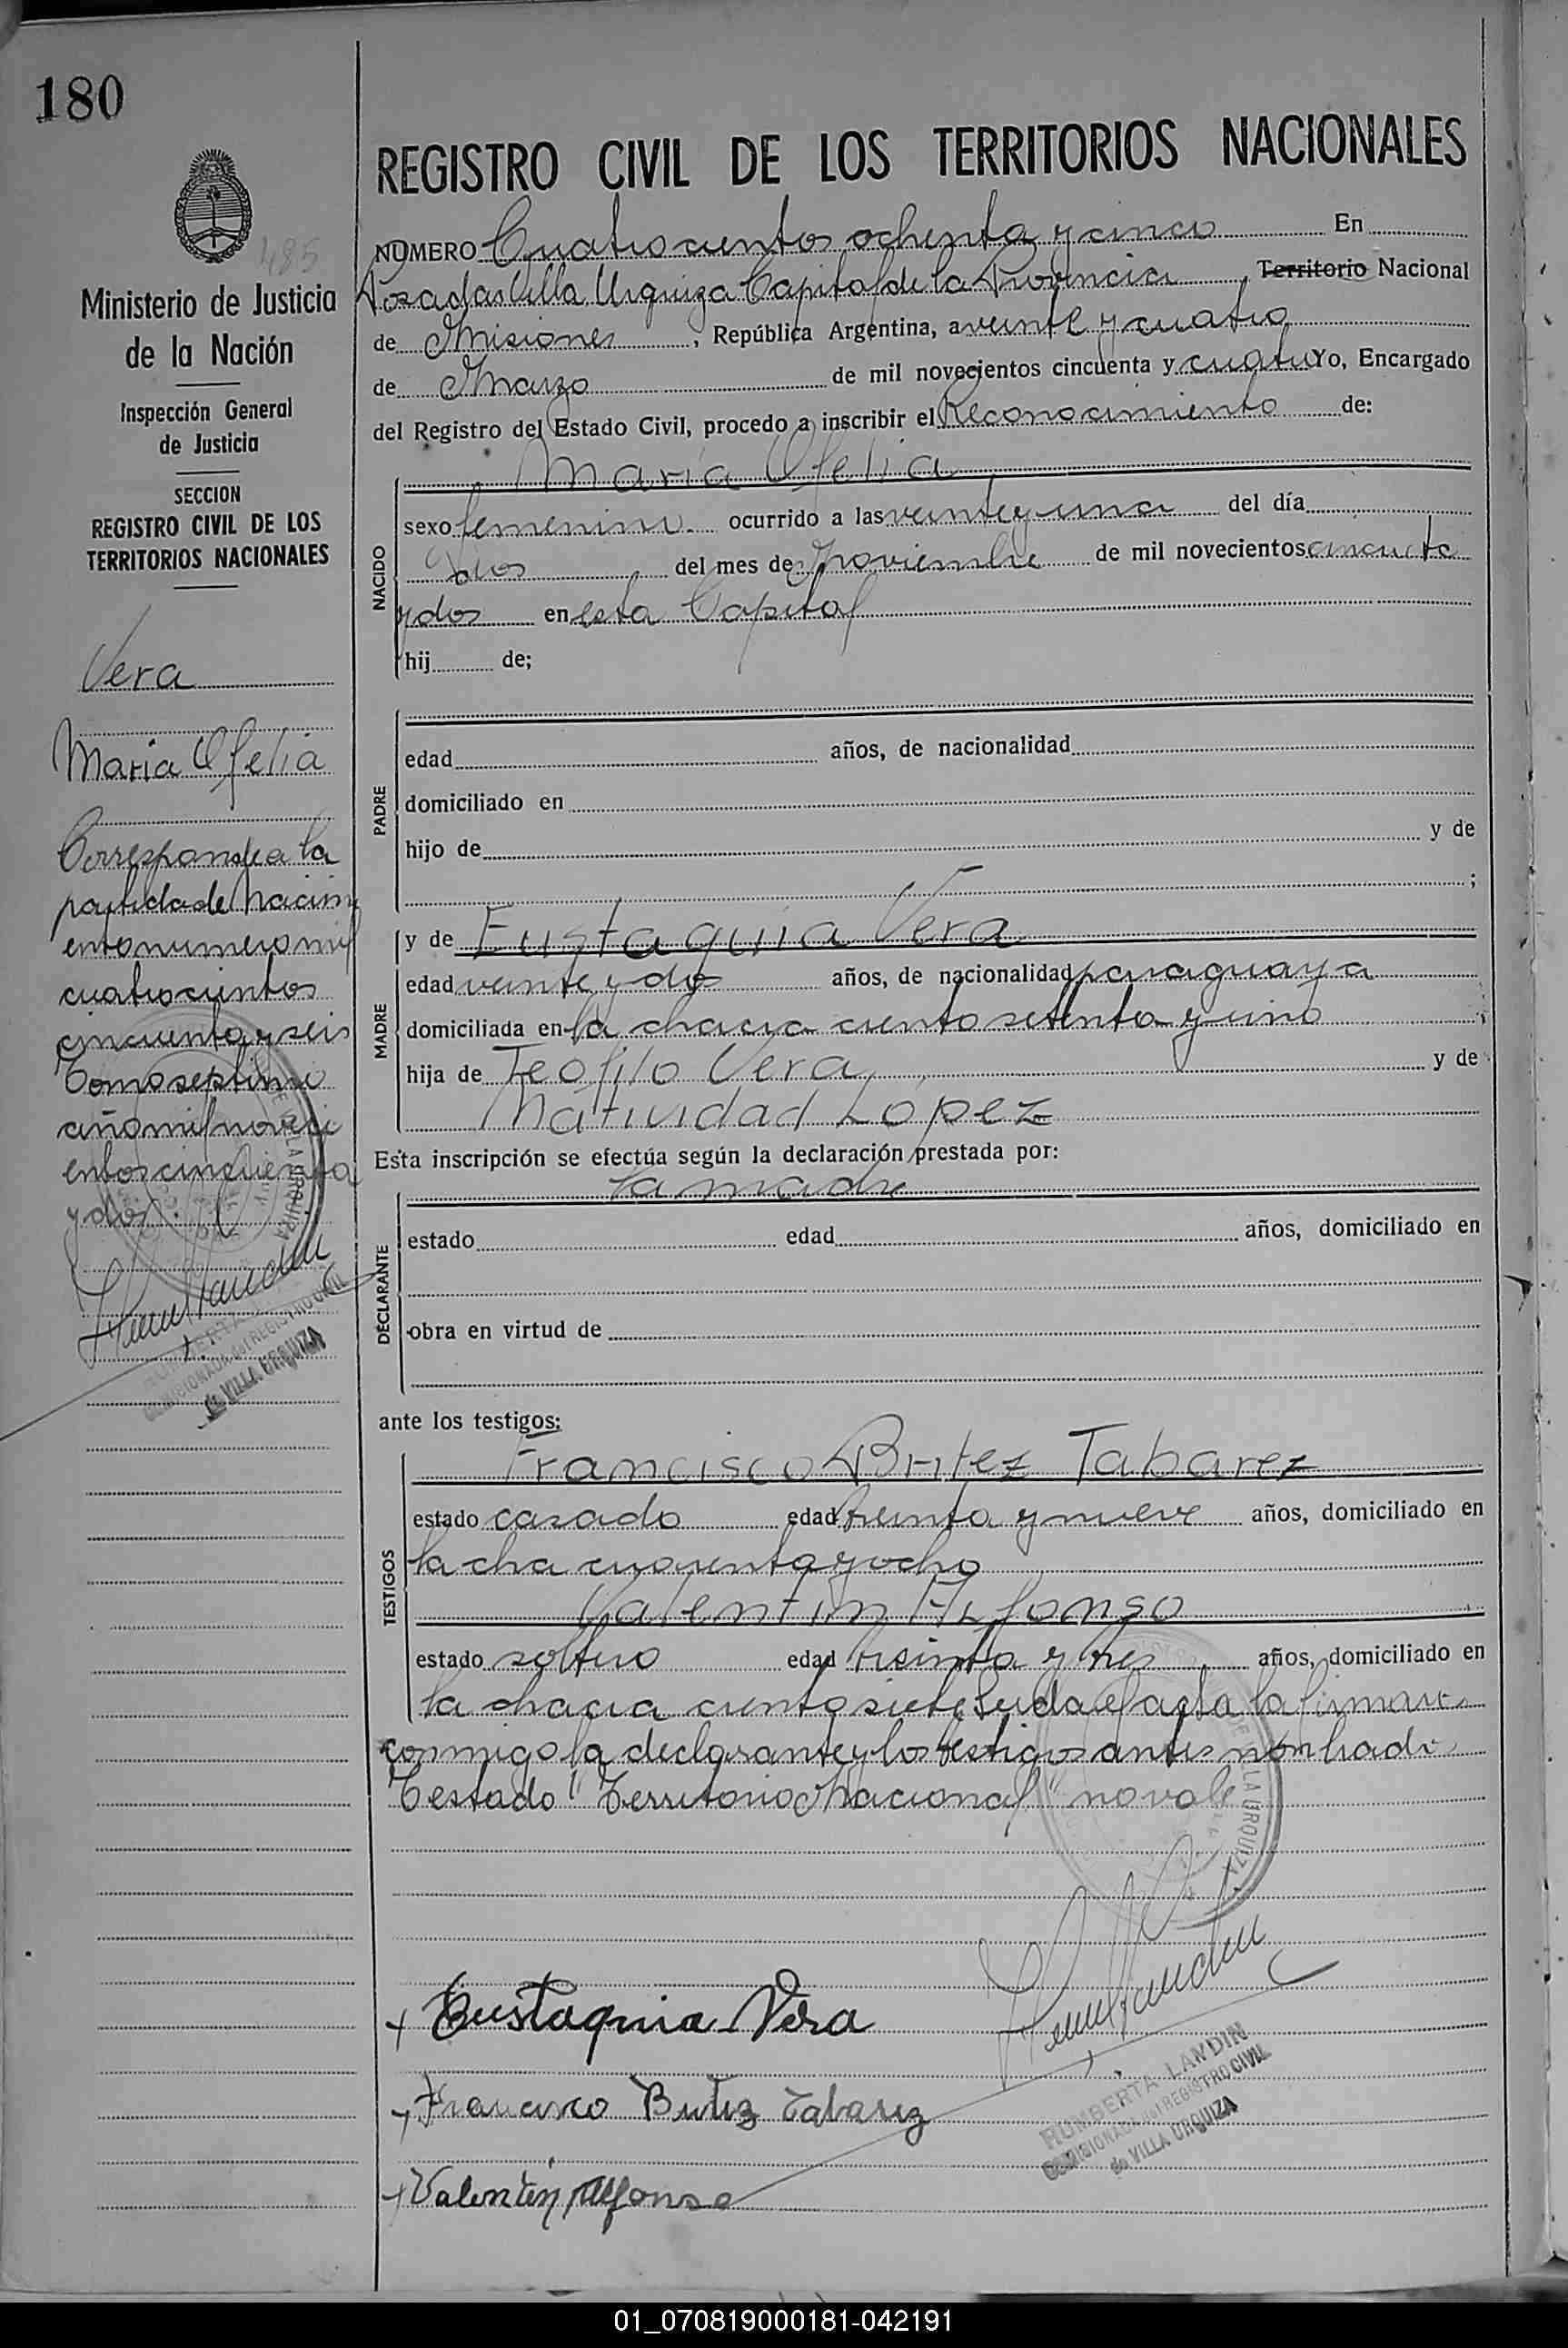 180
485
Ministerio de Justicia
de la Nación
Inspección General
de Justicia
SECCION
REGISTRO CIVIL DE LOS
TERRITORIOS NACIONALES
Vera
Maria Ofelia
Corresponde a la
partida de Nacimi
ento numero mil
cuatrocientos
cincuenta y seis
Tomo septimo
año mil noveci
entos cincuenta
y dos.
COMISIONADA del REGISTRO CIVIL
de VILLA URQUIZA
REGISTRO CIVIL DE LOS TERRITORIOS NACIONALES
NUMERO Cuatrocientos ochenta y cinco En
Posadas Villa Urquiza Capital de la Provincia, Territorio Nacional
de Misiones, República Argentina, a veinte y cuatro
de Marzo de mil novecientos cincuenta y cuatro Yo, Encargado
del Registro del Estado Civil, procedo a inscribir el Reconocimiento de:
Maria Ofelia
NACIDO
sexo femenino ocurrido a las veinte y una del día
dos del mes de Noviembre de mil novecientos cincuenta
y dos en esta Capital
hij de;
PADRE
edad años, de nacionalidad
domiciliado en
hijo de y de
;
MADRE
y de Eustaquia Vera
edad veinte y dos años, de nacionalidad paraguaya
domiciliada en la chacra ciento setenta y uno
hija de Teofilo Vera y de
Natividad Lopez
Esta inscripción se efectúa según la declaración prestada por:
DECLARANTE
la madre
estado edad años, domiciliado en
obra en virtud de
ante los testigos:
TESTIGOS
Francisco Britez Tabarez
estado casado edad treinta y nueve años, domiciliado en
la cha cuarenta y ocho
Valentin Alfonso
estado soltero edad treinta y tres años, domiciliado en
la chacra ciento siete Leida el acta la firman
conmigo la declarante y los testigos antes nombrado
Testado "Territorio Nacional" no vale
Eustaquia Vera
Francisco Britez Tabarez
Valentin Alfonso
RUMBERTA LANDIN
COMISIONADA del REGISTRO CIVIL
de VILLA URQUIZA
01_070819000181-042191